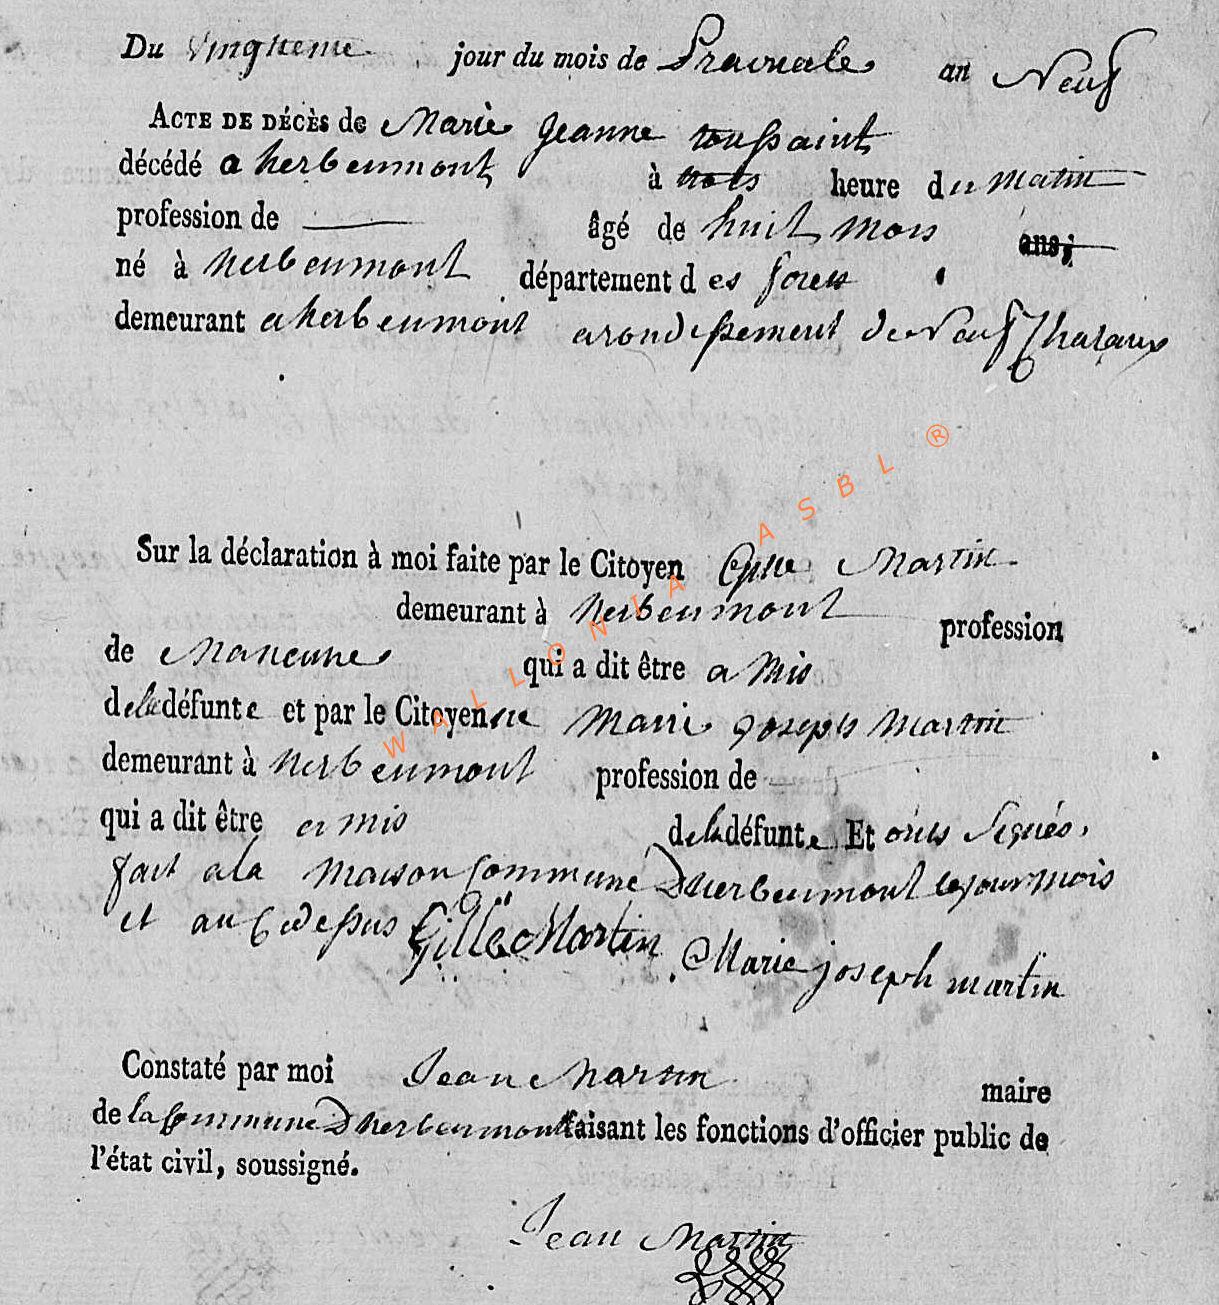 Du vingtieme jour du mois de Prairiale an Neuf
ACTE DE DÉCÈS de Marie Jeanne toussaint
décédé a herbeumont à trois heure du matin
profession de âgé de huit mois ans;
né à herbeumont département des forets
demeurant a herbeumont arondissement de Neufchataux
Sur la déclaration à moi faite par le Citoyen Martin
demeurant à herbeumont profession
de Maneuvre qui a dit être amis
de la défunte et par le Citoyenne Marie joseph Martin
demeurant à herbeumont profession de
qui a dit être amis de la défunte Et onts Signés,
fait a la maison Commune Dherbeumont les jour mois
et an Cydessus Gille Martin Marie joseph martin
Constaté par moi Jean Martin maire
de la Commune Dherbeumont faisant les fonctions d'officier public de
l'état civil, soussigné.
Jean Martin
WALLONIA ASBL ®